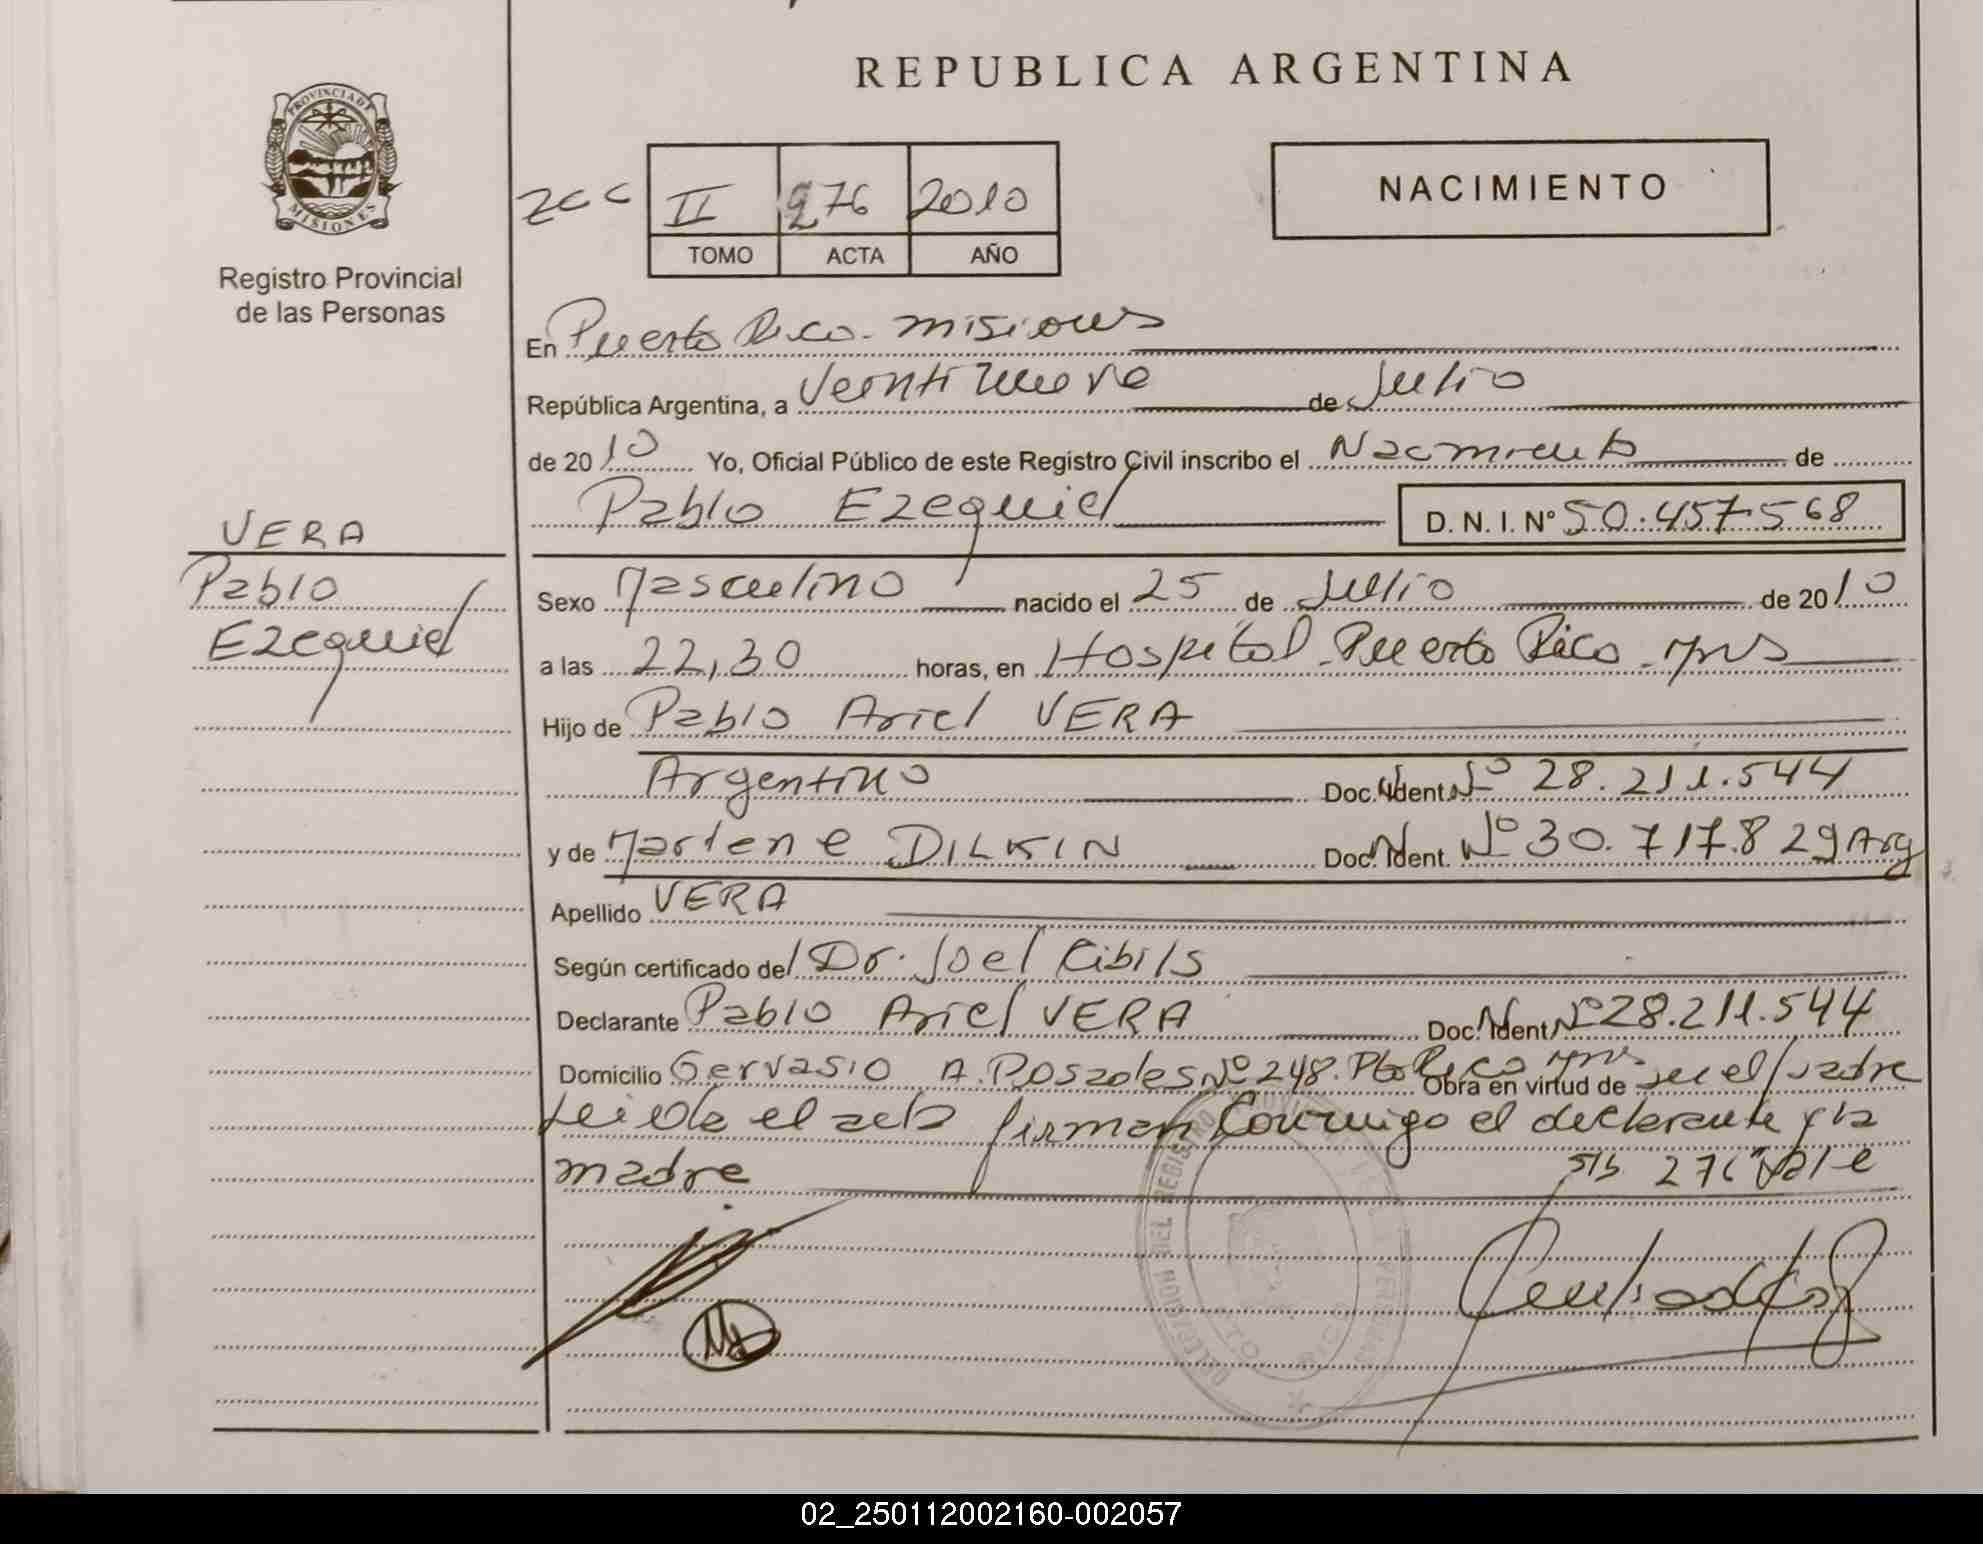 REPUBLICA ARGENTINA
PROVINCIA DE
MISIONES
Registro Provincial
de las Personas
II 276 2010
TOMO ACTA AÑO
NACIMIENTO
En Puerto Rico - Misiones
República Argentina, a Veintinueve de Julio
de 2010 Yo, Oficial Público de este Registro Civil inscribo el Nacimiento de
Pablo Ezequiel D. N. I. Nº 50.457.568
VERA
Pablo
Ezequiel
Sexo Masculino nacido el 25 de Julio de 2010
a las 22,30 horas, en Hospital - Puerto Rico - Mns
Hijo de Pablo Ariel VERA
Argentino Doc. Ident. Nº 28.211.544
y de Marlene DILKIN Doc. Ident. Nº 30.717.829 Arg
Apellido VERA
Según certificado del Dr. Joel Cibils
Declarante Pablo Ariel VERA Doc. Ident. Nº 28.211.544
Domicilio Gervasio A. Posadas Nº 248. Pto Rico Mns Obra en virtud de ser el padre
Leida el acta firman Conmigo el declarante y la
madre s/b 276 "Vale
02_250112002160-002057